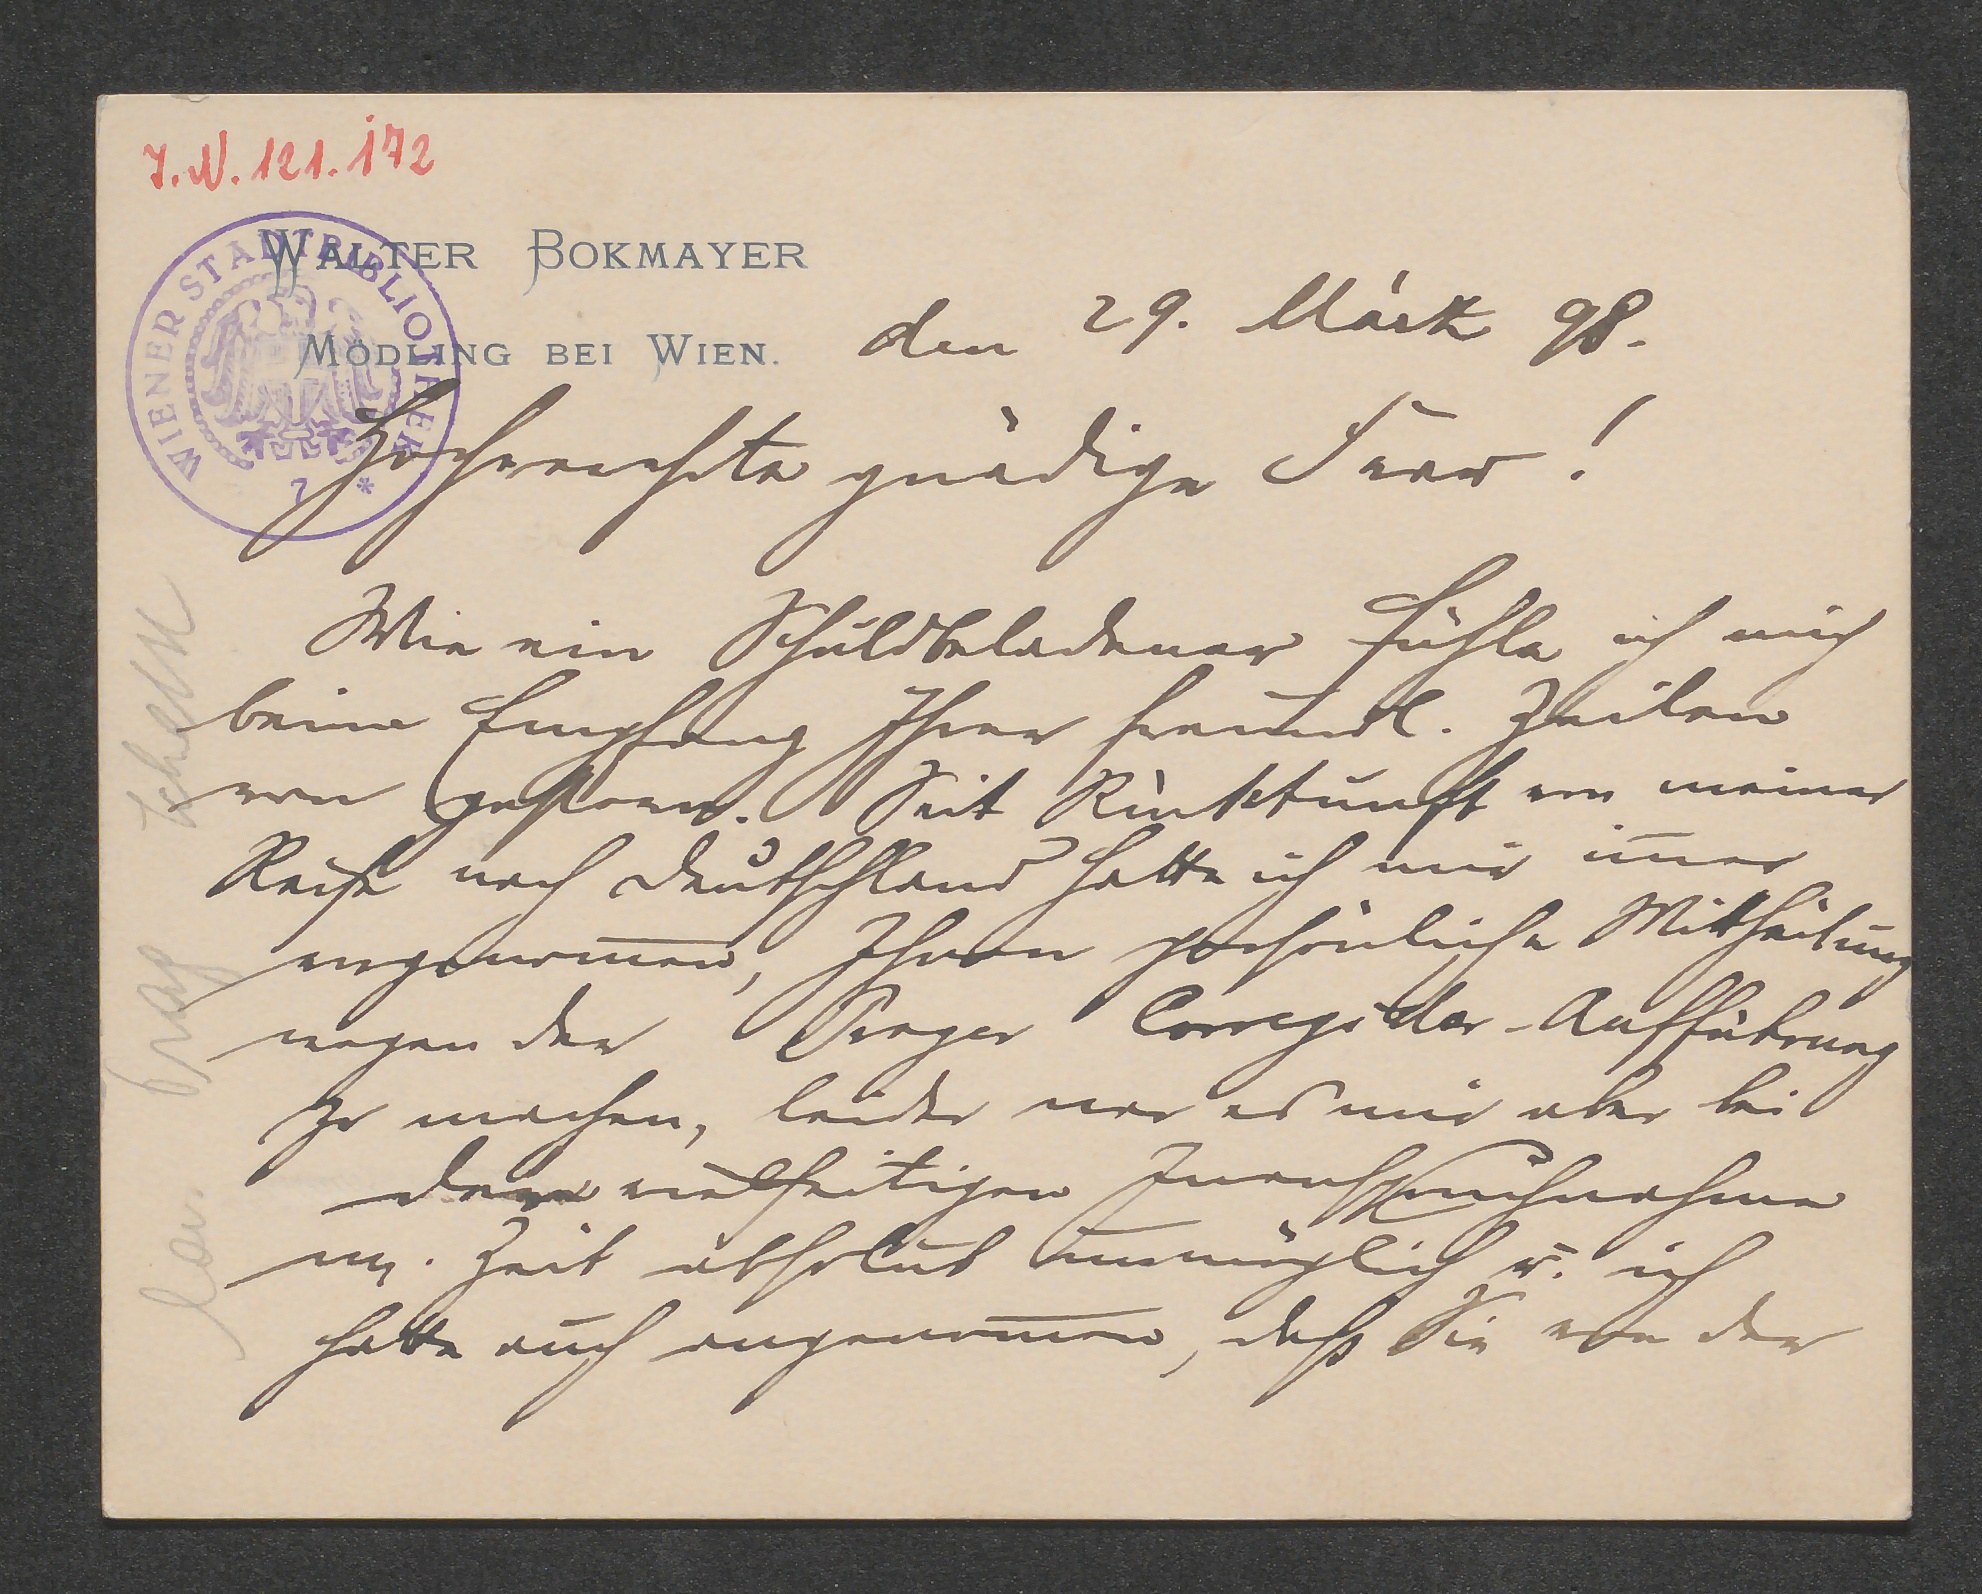 J.N. 121.172
WALTER BOKMAYER
MÖDLING BEI WIEN.
WIENER STADTBIBLIOTHEK
7 *
den 29. März 98.
Hochverehrte gnädige Frau!
Wie ein Schuldbeladener fühle ich mich
beim Empfang Ihrer freundl. Zeilen
von gestern. Seit Rückkunft von meiner
Reise nach Deutschland hatte ich mir im̅er
vorgenom̅en, Ihnen persönliche Mittheilung
wegen der Prager Corregidor-Aufführung
zu machen, leider war es mir aber bei
der vielseitigen Inanspruchnahme
m. Zeit absolut unmöglich u. ich
hatte auch angenom̅en, daß Sie von der
Cor. Prag